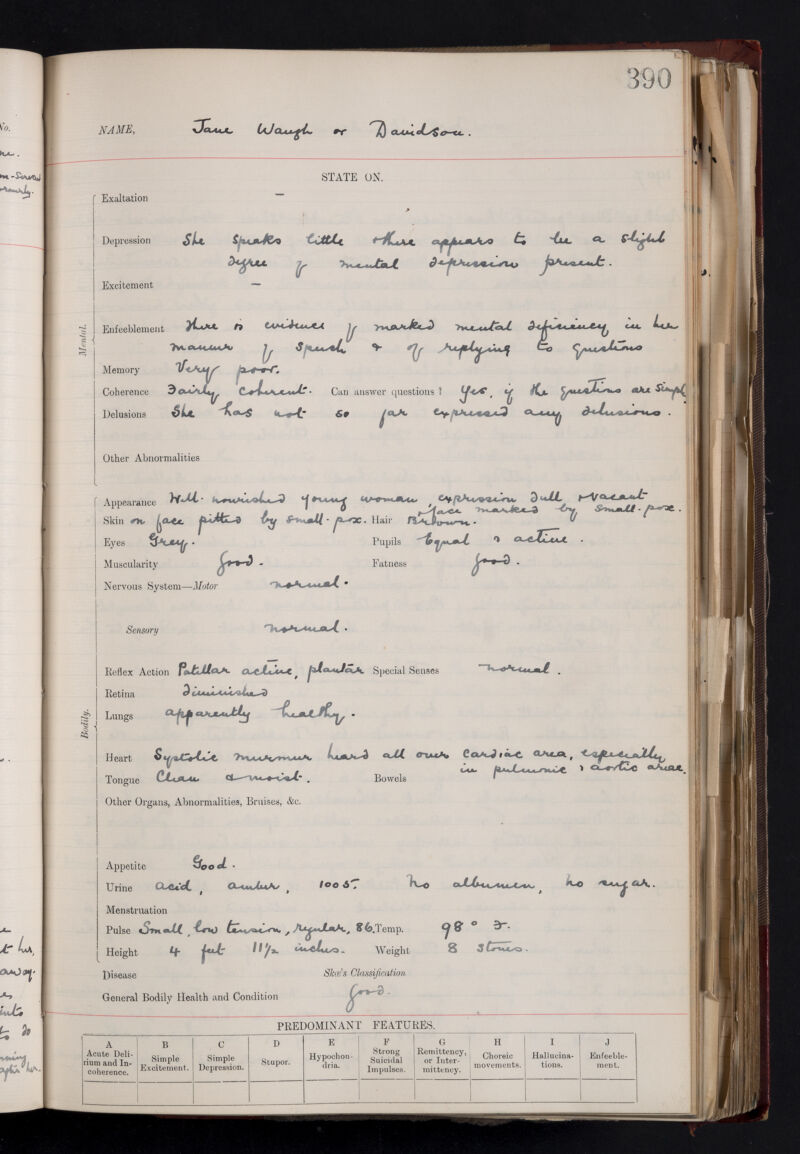 390
NAME, Jane Waugh or Davidson.
STATE ON.
Mental.
Exaltation —
Depression She speaks little & there appears to be a slight
degree of mental depression present.
Excitement —
Enfeeblement There is evidence of marked mental deficiency in her
manner of speech & of replying to questions
Memory Very poor.
Coherence Fairly coherent. Can answer questions? Yes, if the questions are simple
Delusions She has not so far expressed any delusions.
Other Abnormalities
Bodily.
Appearance Well-nourished young woman, expression dull & vacant
& face marked by small-pox.
Skin on face pitted by small-pox. Hair Brown.
Eyes Grey. Pupils Equal & active.
Muscularity Good. Fatness Good.
Nervous System—Motor normal.
Sensory normal.
Reflex Action Patellar active, plantar Special Senses normal.
Retina diminished
Lungs apparently healthy.
Heart Systolic murmur heard all over cardiac area, especially
in pulmonic & aortic areae.
Tongue Clean & moist. Bowels
Other Organs, Abnormalities, Bruises, &c.
Appetite Good.
Urine acid, amber, 1005. No albumen, no sugar.
Menstruation
Pulse Small, low tension, regular, 86. Temp. 98° F.
Height 4 feet 11½ inches. Weight 8 stones.
Disease Skae's Classification
General Bodily Health and Condition Good.
PREDOMINANT FEATURES.
A B C D E F G H I J
Acute Delirium and Incoherence. Simple Excitement. Simple Depression. Stupor. Hypochondria. Strong Suicidal Impulses. Remittency, or Intermittency. Choreic movements. Hallucinations. Enfeeblement.